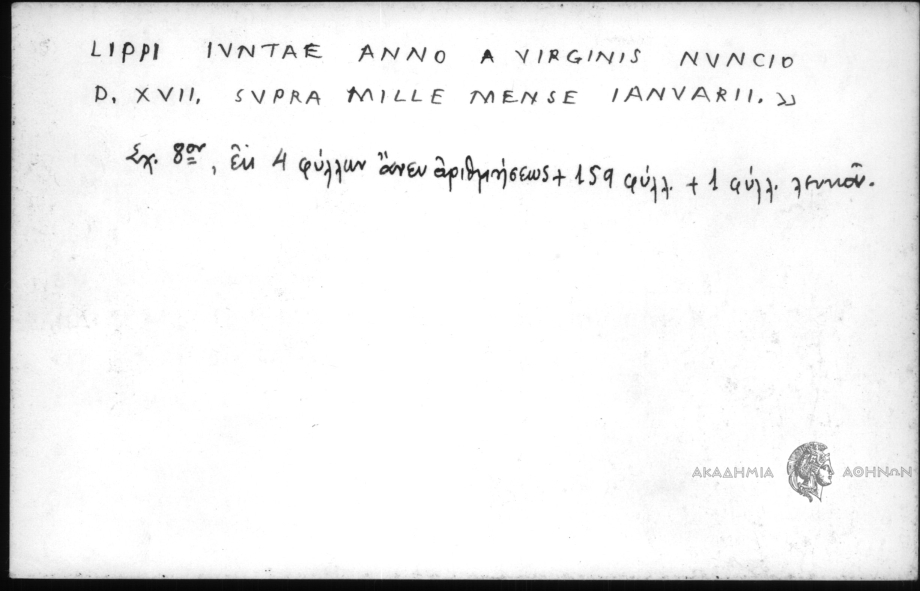 LIPPI IVNTAE ANNO A VIRGINIS NVNCIO
D. XVII. SVPRA MILLE MENSE IANVARII. »
Σχ. 8ον, ἐκ 4 φύλλων ἄνευ ἀριθμήσεως + 159 φύλλ. + 1 φύλλ. λευκοῦ.
ΑΚΑΔΗΜΙΑ ΑΘΗΝΩΝ